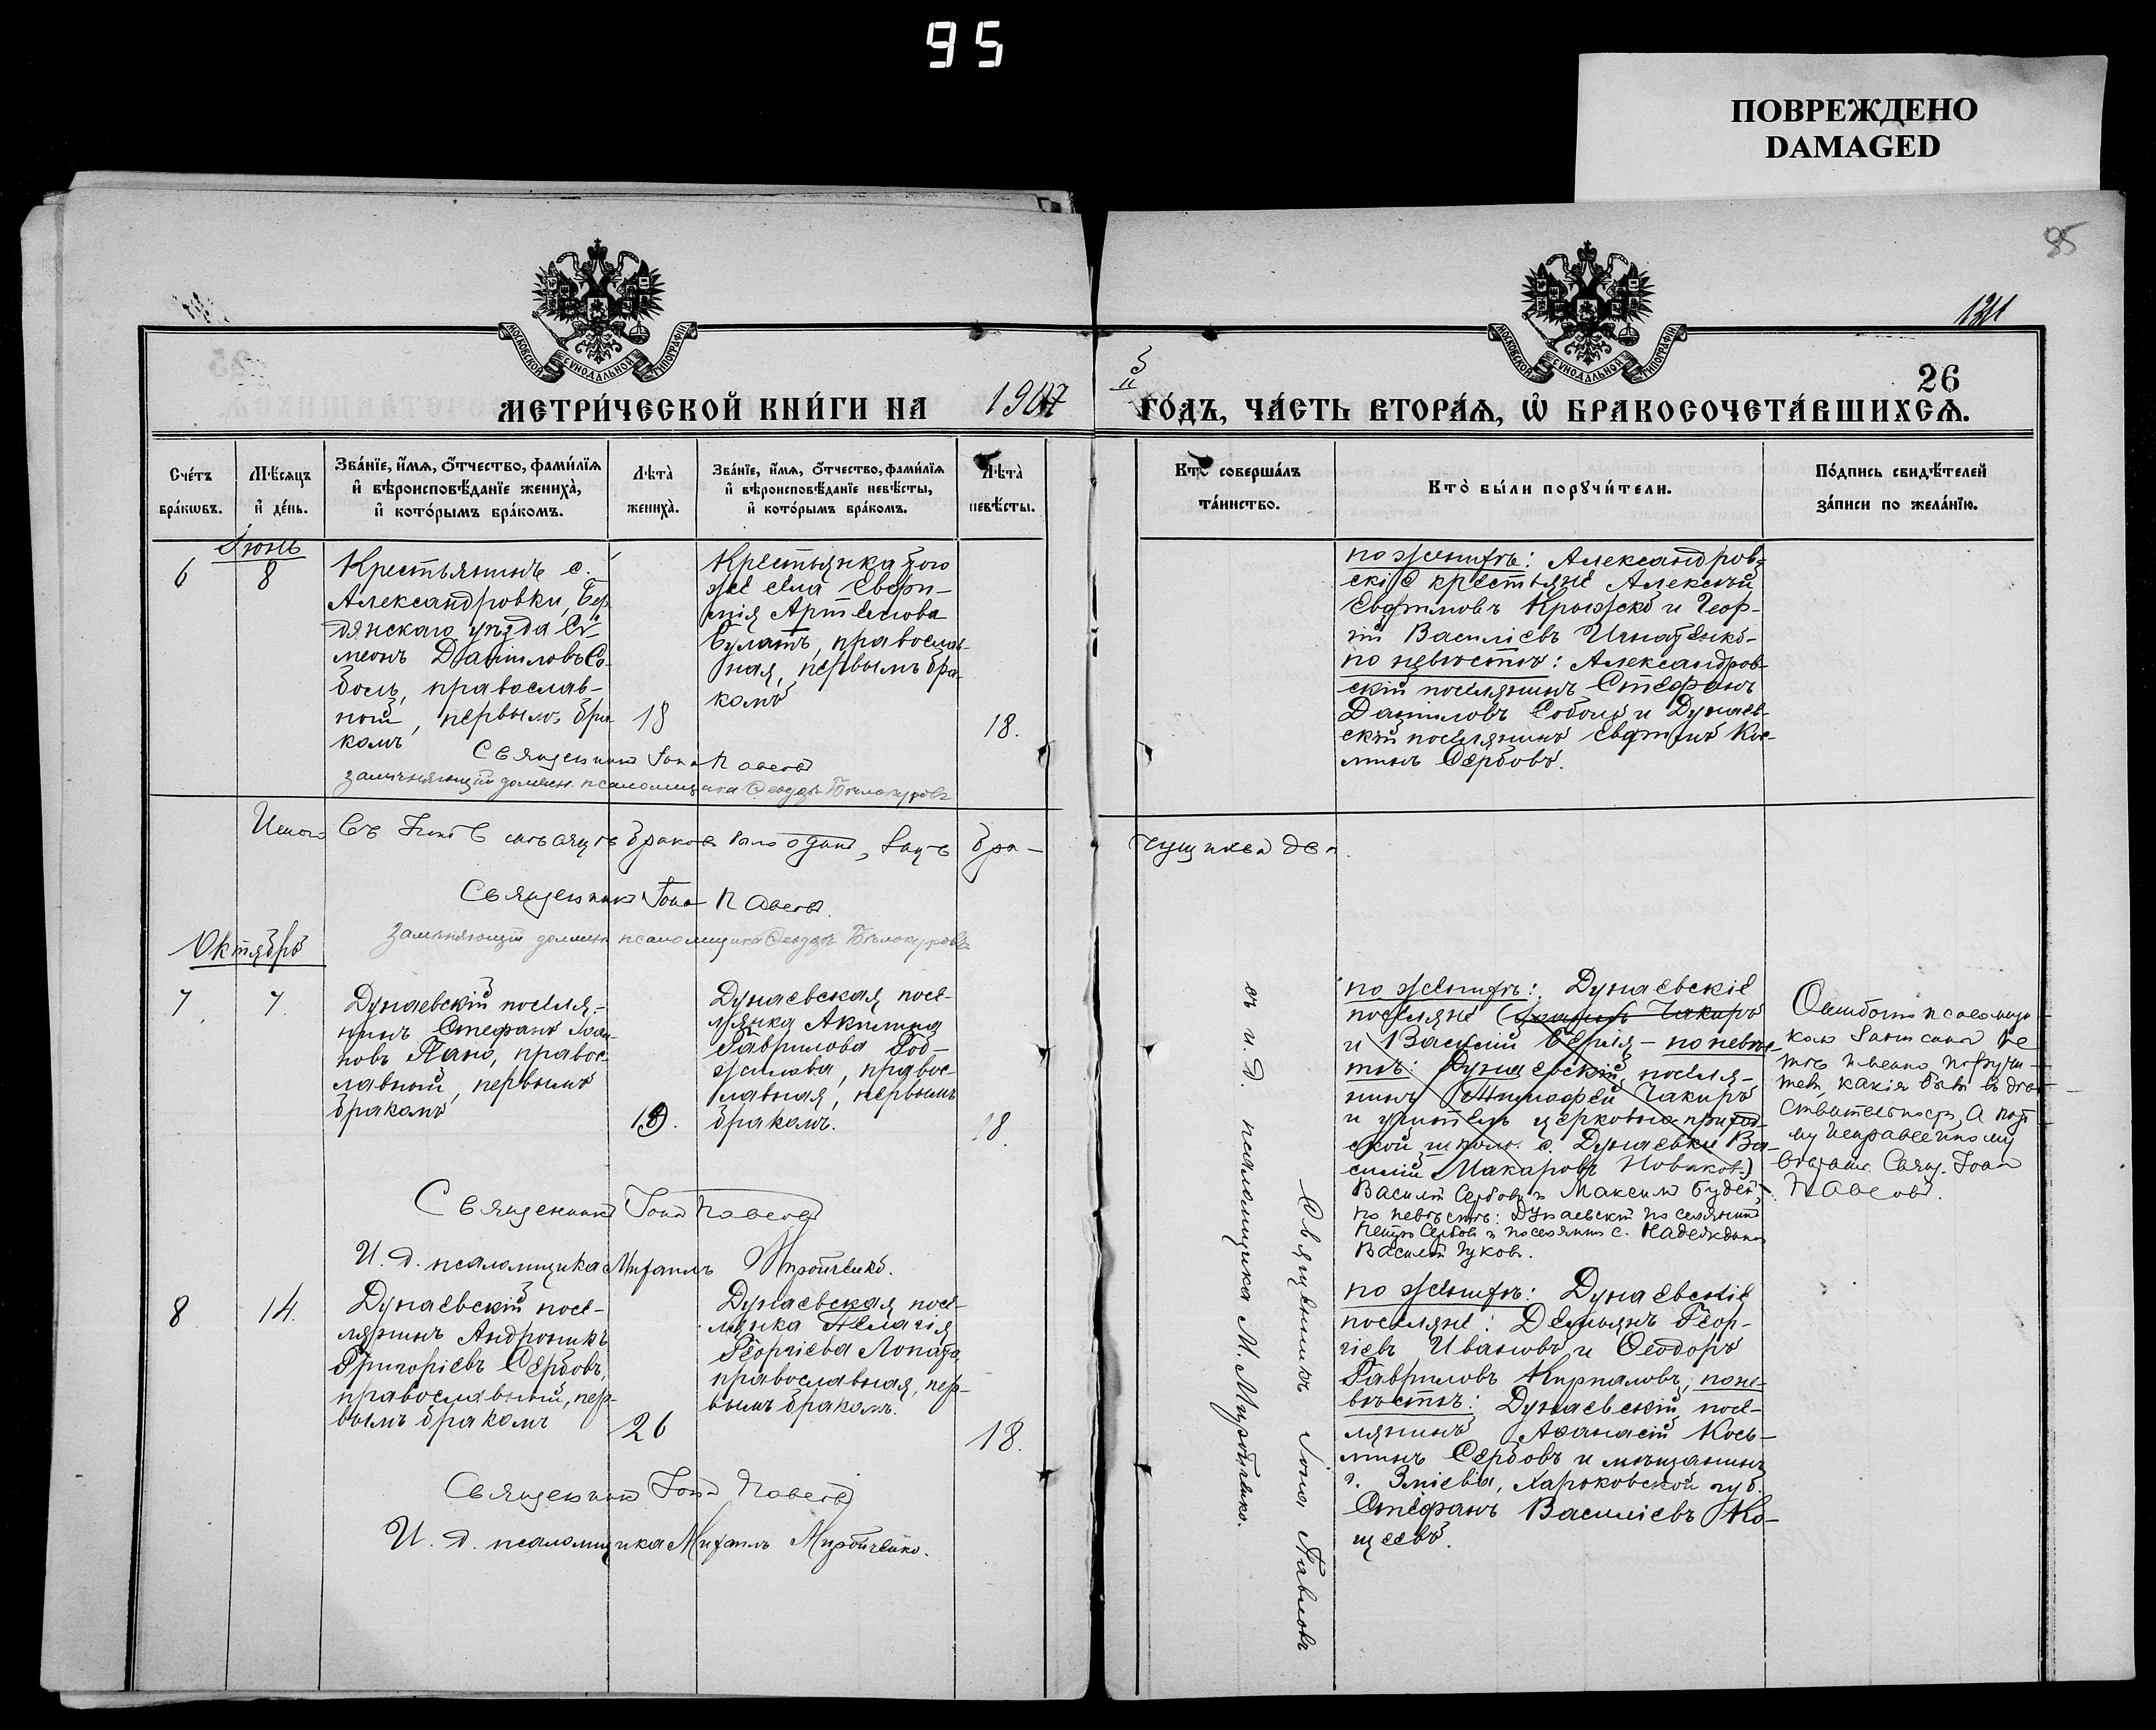 95
ПОВРЕЖДЕНО
DAMAGED
95
МОСКОВСКОЙ СѴНОДАЛЬНОЙ ТИПОГРАФІИ
МОСКОВСКОЙ СѴНОДАЛЬНОЙ ТИПОГРАФІИ
26
МЕТРИ́ЧЕСКОЙ КНИ́ГИ НА 1907
ГО́ДЪ, ЧА́СТЬ ВТОРА́Я, Ѡ҆ БРАКОСОЧЕТА́ВШИХСѦ.
Сче́тъ
бра́кѡвъ.
Мѣ́сѧцъ
и҆ де́нь.
Зва́нїе, и҆́мѧ, ѻ҆́тчество, фами́лїѧ
и҆ вѣроисповѣ́данїе жениха̀,
и҆ кото́рымъ бра́комъ.
Лѣта̀
жениха̀.
Зва́нїе, и҆́мѧ, ѻ҆́тчество, фами́лїѧ
и҆ вѣроисповѣ́данїе невѣ́сты,
и҆ кото́рымъ бра́комъ.
Лѣта̀
невѣ́сты.
Кто̀ соверша́лъ
та́инство.
Кто̀ бы́ли порꙋчи́тели.
По́дпись свидѣ́телей
за́писи по жела́нїю.
Іюнь
6
8
Крестьянинъ с.
Александровки, Бер-
дянскаго уѣзда Си-
меонъ Даніиловъ Со-
боль, православ-
ный, первымъ бра-
комъ
18
Крестьянка того
же села Евфи-
мія Артемова
Булатъ, православ-
ная, первымъ бра-
комъ
18.
по женихѣ: Александров-
скіе крестьяне Алексѣй
Евфимовъ Крыжко и Геор-
гій Василіевъ Игнатенко-
по невѣстѣ: Александров-
скій поселянинъ Стефанъ
Даніиловъ Соболь и Дунаев-
скій поселянинъ Евфимъ Кос-
минъ Сербовъ.
Священникъ Іона Павловъ
Замѣняющій должн. псаломщика Ѳеодоръ Бѣлокуровъ
Итого въ Іюнѣ мѣсяцѣ браковъ было одинъ, лицъ бра-
чущихся два.
Священникъ Іона Павловъ.
Замѣняющій должн. псаломщика Ѳеодоръ Бѣлокуровъ
Октябрь
7
7.
Дунаевскій поселя-
нинъ Стефанъ Іоан-
новъ Пано, правос-
лавный, первымъ
бракомъ
Дунаевская посе-
лянка Акилина
Гаврилова
православная, первымъ
бракомъ.
18.
по женихѣ: Дунаевскіе
поселяне Чакиръ
и Василій - по невѣс-
тѣ: Дунаевскій поселя-
нинъ Тимофей Чакиръ
и учитель церковно-приход-
ской школы с. Дунаевки Ва-
силій Макаровъ Новиков.)
Василій Сербовъ и Максимъ
по невѣстѣ: Дунаевскій поселянинъ
Петръ Сербовъ и поселянинъ с. Надеждина
Василій Жуков.
Ошибочно псаломщи-
комъ записаны не
тѣ именно поручи-
тели, какія были въ дѣй-
ствительности, а пото-
му исправленному
вѣрить. Свящ. Іона
Павловъ.
Священникъ Іона Павловъ
И. д. псаломщика Михаилъ Миройченко.
8
14.
Дунаевскій посе-
лянинъ Андроникъ
Григоріевъ Сербовъ,
православный, пер-
вымъ бракомъ
26
Дунаевская посе-
лянка Пелагія
Георгіева Лопата
православная, пер-
вымъ бракомъ.
18.
по женихѣ: Дунаевскіе
поселяне: Демьянъ Геор-
гіевъ Ивановъ и Ѳеодоръ
Гавриловъ Кирпаловъ, по не-
вѣстѣ: Дунаевскій посе-
лянинъ Аѳанасій Кось-
минъ Сербовъ и мѣщанинъ
г. Зміева, Харьковской губ.
Стефанъ Василіевъ Ко-
щеевъ.
Священникъ Іона Павловъ
И. д. псаломщика Михаилъ Миройченко.
Священникъ Іона Павловъ
съ и. д. псаломщика М. Миройченко.